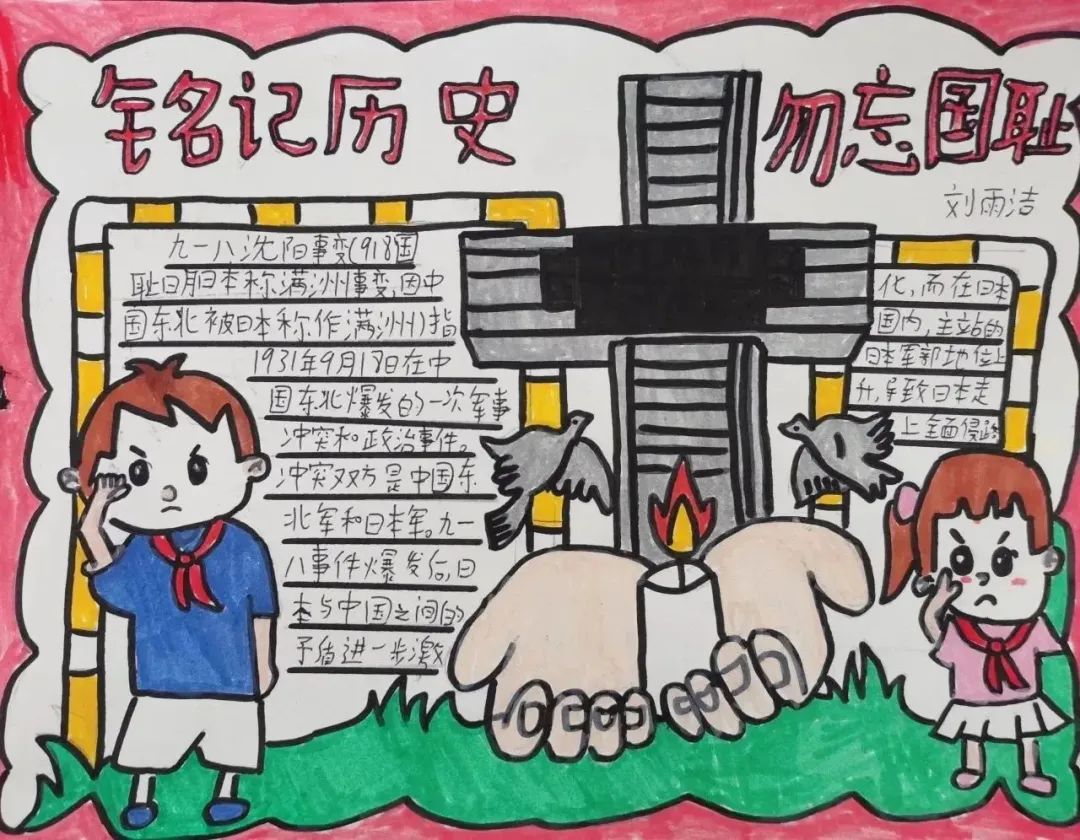 铭记历史
勿忘国耻
刘雨洁
九一八沈阳事变(918国
耻日月日本称满洲事变,因中
国东北被日本称作满洲)指
1931年9月18日在中
国东北爆发的一次军事
冲突和政治事件。
冲突双方是中国东
北军和日本军。九一
八事件爆发后,日
本与中国之间的
矛盾进一步激
化,而在日本
国内,主立站的
日本军部地位上
升,导致日本走
上全面侵略